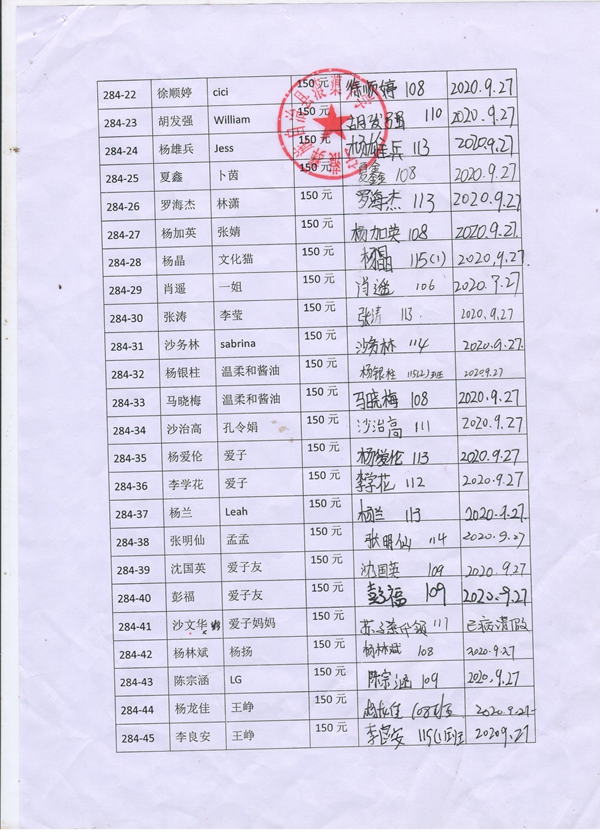 284-22 徐顺婷 cici 150 元 徐顺婷 108 2020.9.27
284-23 胡发强 William 150 元 胡发强 110 2020.9.27
284-24 杨雄兵 Jess 150 元 杨雄兵 113 2020.9.27
284-25 夏鑫 卜茵 150 元 夏鑫 108 2020.9.27
284-26 罗海杰 林潇 150 元 罗海杰 113 2020.9.27
284-27 杨加英 张婧 150 元 杨加英 108 2020.9.27
284-28 杨晶 文化猫 150 元 杨晶 115(1) 2020.9.27
284-29 肖遥 一姐 150 元 肖遥 106 2020.9.27
284-30 张涛 李莹 150 元 张涛 113 2020.9.27
284-31 沙务林 sabrina 150 元 沙务林 114 2020.9.27
284-32 杨银柱 温柔和酱油 150 元 杨银柱 115(2)班 2020.9.27
284-33 马晓梅 温柔和酱油 150 元 马晓梅 108 2020.9.27
284-34 沙治高 孔令娟 150 元 沙治高 111 2020.9.27
284-35 杨爱伦 爱子 150 元 杨爱伦 113 2020.9.27
284-36 李学花 爱子 150 元 李学花 112 2020.9.27
284-37 杨兰 Leah 150 元 杨兰 113 2020.9.27
284-38 张明仙 孟孟 150 元 张明仙 114 2020.9.27
284-39 沈国英 爱子友 150 元 沈国英 109 2020.9.27
284-40 彭福 爱子友 150 元 彭福 109 2020.9.27
284-41 沙文华 爱子妈妈 150 元 117 已病请假
284-42 杨林斌 杨扬 150 元 杨林斌 108 2020.9.27
284-43 陈宗涵 LG 150 元 陈宗涵 109 2020.9.27
284-44 杨龙佳 王峥 150 元 杨龙佳 108班 2020.9.27
284-45 李良安 王峥 150 元 李良安 115(1)班 2020.9.27